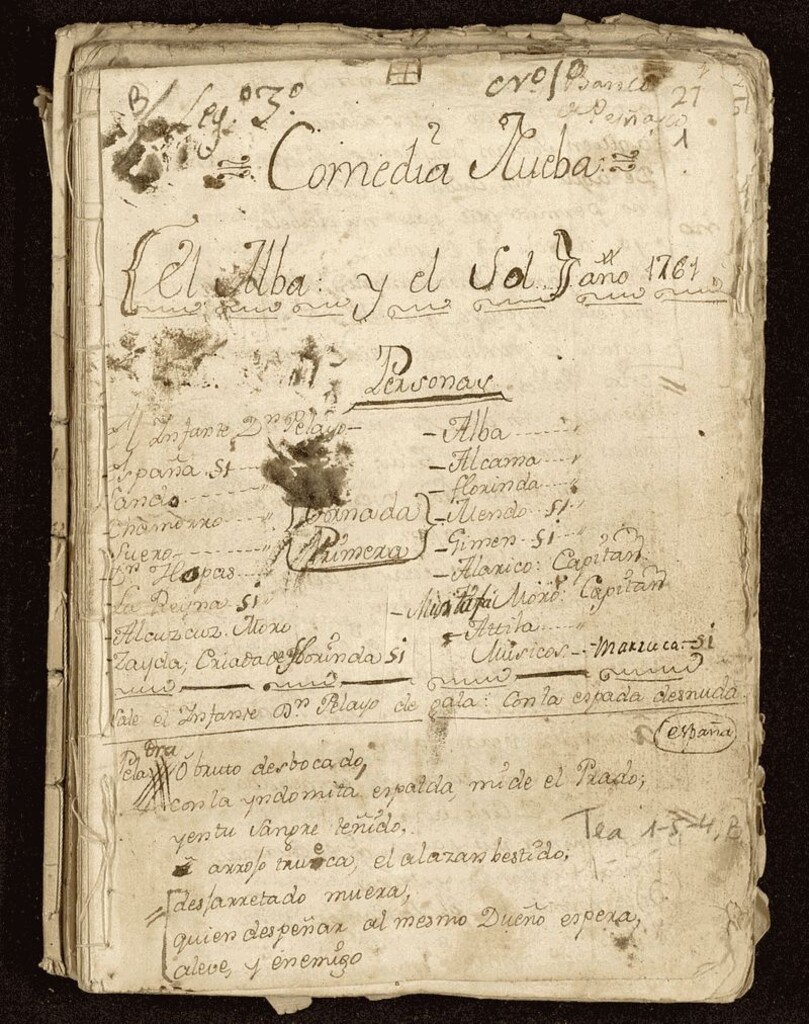 Leg.º 3.º
nº 1º
27
1
Comedia Nueba
{El Alba: y el Sol} año 1761
Personas
Infante Dn Pelayo
España si
Sancho
Chamorro
Suero
Dn Hopas
La Reyna si
Alcuzcuz Moro
Zayda; Criada de florinda si
Jornada
Primera
Alba
Alcama
florinda
Mendo si
Gimen si
Alarico: Capitan
Mustafa Moro: Capitan
Attila
Musicos Marzuca si
Sale el Infante Dn Pelayo de gala: Con la espada desnuda
españa
Pela O bruto desbocado,
con la yndomita espalda, mide el Prado;
yentu sangre teñido,
Tea 1-5-4, B
el alazan bestido;
desjarretado muera,
quien despeñar al mesmo Dueño espera,
aleve, y enemigo